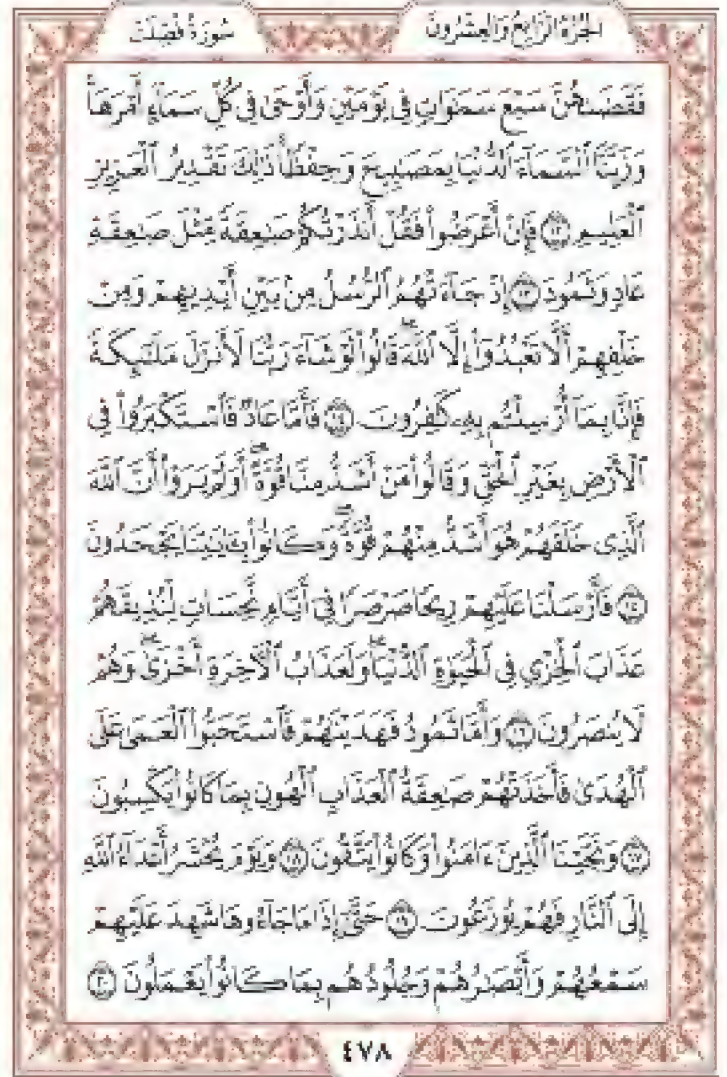 الجزء الرابع والعشرون
سورة فصلت
فَقَضَىٰهُنَّ سَبْعَ سَمَٰوَاتٍ فِي يَوْمَيْنِ وَأَوْحَىٰ فِي كُلِّ سَمَآءٍ أَمْرَهَا
وَزَيَّنَّا ٱلسَّمَآءَ ٱلدُّنْيَا بِمَصَٰبِيحَ وَحِفْظًا ذَٰلِكَ تَقْدِيرُ ٱلْعَزِيزِ
ٱلْعَلِيمِ ١٢ فَإِنْ أَعْرَضُوا۟ فَقُلْ أَنذَرْتُكُمْ صَٰعِقَةً مِّثْلَ صَٰعِقَةِ
عَادٍ وَثَمُودَ ١٣ إِذْ جَآءَتْهُمُ ٱلرُّسُلُ مِنۢ بَيْنِ أَيْدِيهِمْ وَمِنْ
خَلْفِهِمْ أَلَّا تَعْبُدُوٓا۟ إِلَّا ٱللَّهَ ۖ قَالُوا۟ لَوْ شَآءَ رَبُّنَا لَأَنزَلَ مَلَٰٓئِكَةً
فَإِنَّا بِمَآ أُرْسِلْتُم بِهِۦ كَٰفِرُونَ ١٤ فَأَمَّا عَادٌ فَٱسْتَكْبَرُوا۟ فِي
ٱلْأَرْضِ بِغَيْرِ ٱلْحَقِّ وَقَالُوا۟ مَنْ أَشَدُّ مِنَّا قُوَّةً ۖ أَوَلَمْ يَرَوْا۟ أَنَّ ٱللَّهَ
ٱلَّذِي خَلَقَهُمْ هُوَ أَشَدُّ مِنْهُمْ قُوَّةً ۖ وَكَانُوا۟ بِـَٔايَٰتِنَا يَجْحَدُونَ
١٥ فَأَرْسَلْنَا عَلَيْهِمْ رِيحًا صَرْصَرًا فِيٓ أَيَّامٍ نَّحِسَاتٍ لِّنُذِيقَهُمْ
عَذَابَ ٱلْخِزْيِ فِي ٱلْحَيَوٰةِ ٱلدُّنْيَا ۖ وَلَعَذَابُ ٱلْأَخِرَةِ أَخْزَىٰ ۖ وَهُمْ
لَا يُنصَرُونَ ١٦ وَأَمَّا ثَمُودُ فَهَدَيْنَٰهُمْ فَٱسْتَحَبُّوا۟ ٱلْعَمَىٰ عَلَى
ٱلْهُدَىٰ فَأَخَذَتْهُمْ صَٰعِقَةُ ٱلْعَذَابِ ٱلْهُونِ بِمَا كَانُوا۟ يَكْسِبُونَ
١٧ وَنَجَّيْنَا ٱلَّذِينَ ءَامَنُوا۟ وَكَانُوا۟ يَتَّقُونَ ١٨ وَيَوْمَ يُحْشَرُ أَعْدَآءُ ٱللَّهِ
إِلَى ٱلنَّارِ فَهُمْ يُوزَعُونَ ١٩ حَتَّىٰٓ إِذَا مَا جَآءُوهَا شَهِدَ عَلَيْهِمْ
سَمْعُهُمْ وَأَبْصَٰرُهُمْ وَجُلُودُهُم بِمَا كَانُوا۟ يَعْمَلُونَ ٢٠
٤٧٨